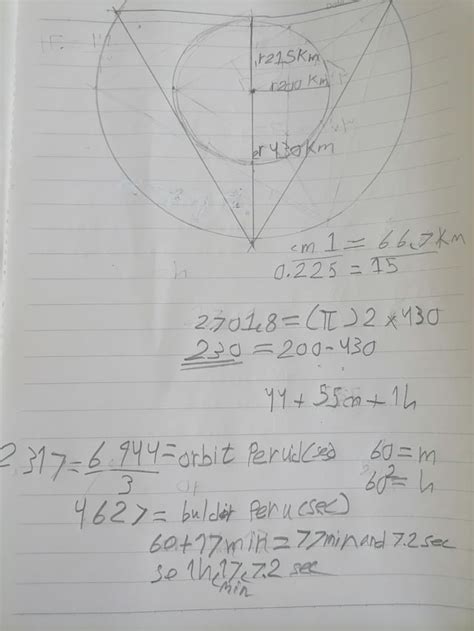 r215Km
r200Km
er 430Km
cm 1 = 66.7Km
0.225 = 15
2701,8=(π)2×430
230 = 200-430
44+55cm+1h
2,317=6.944=orbit Peruid(sec) 60=m
3 60²=h
4627= buldor Peru(sec)
60+17min=77min and 7.2sec
so 1h,17,7.2 sec
min